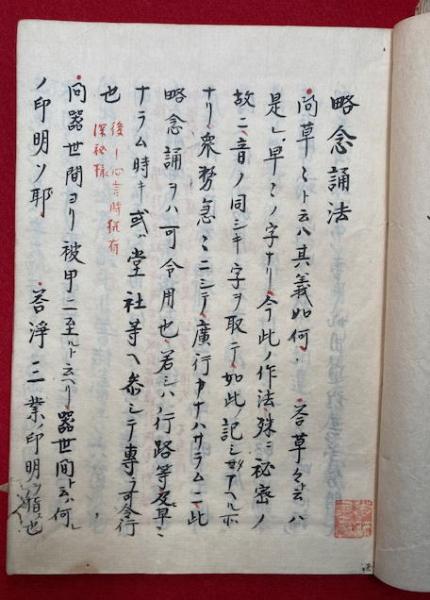 略念誦法
問草〻ト云ハ其義如何 答草〻ト云ハ
是レ早〻ノ字ナリ今此ノ作法殊ニ秘密ノ
故ニ音ノ同シキ字ヲ取テ如此ノ記シ玅アヘル
ナリ衆務急〻ニシテ廣行 ナハサラム二此
略念誦ヲハ可令用也若シハ行路等及草〻
ナラム時キ或ハ堂社等ヘ参シテ専ラ可令行
也
後
深秘
問器世間ヨリ被甲ニ至ルト云ヘリ器世間ト云ハ何レ
ノ印明ソ耶 答淨三業ノ印明ヲ指ス也